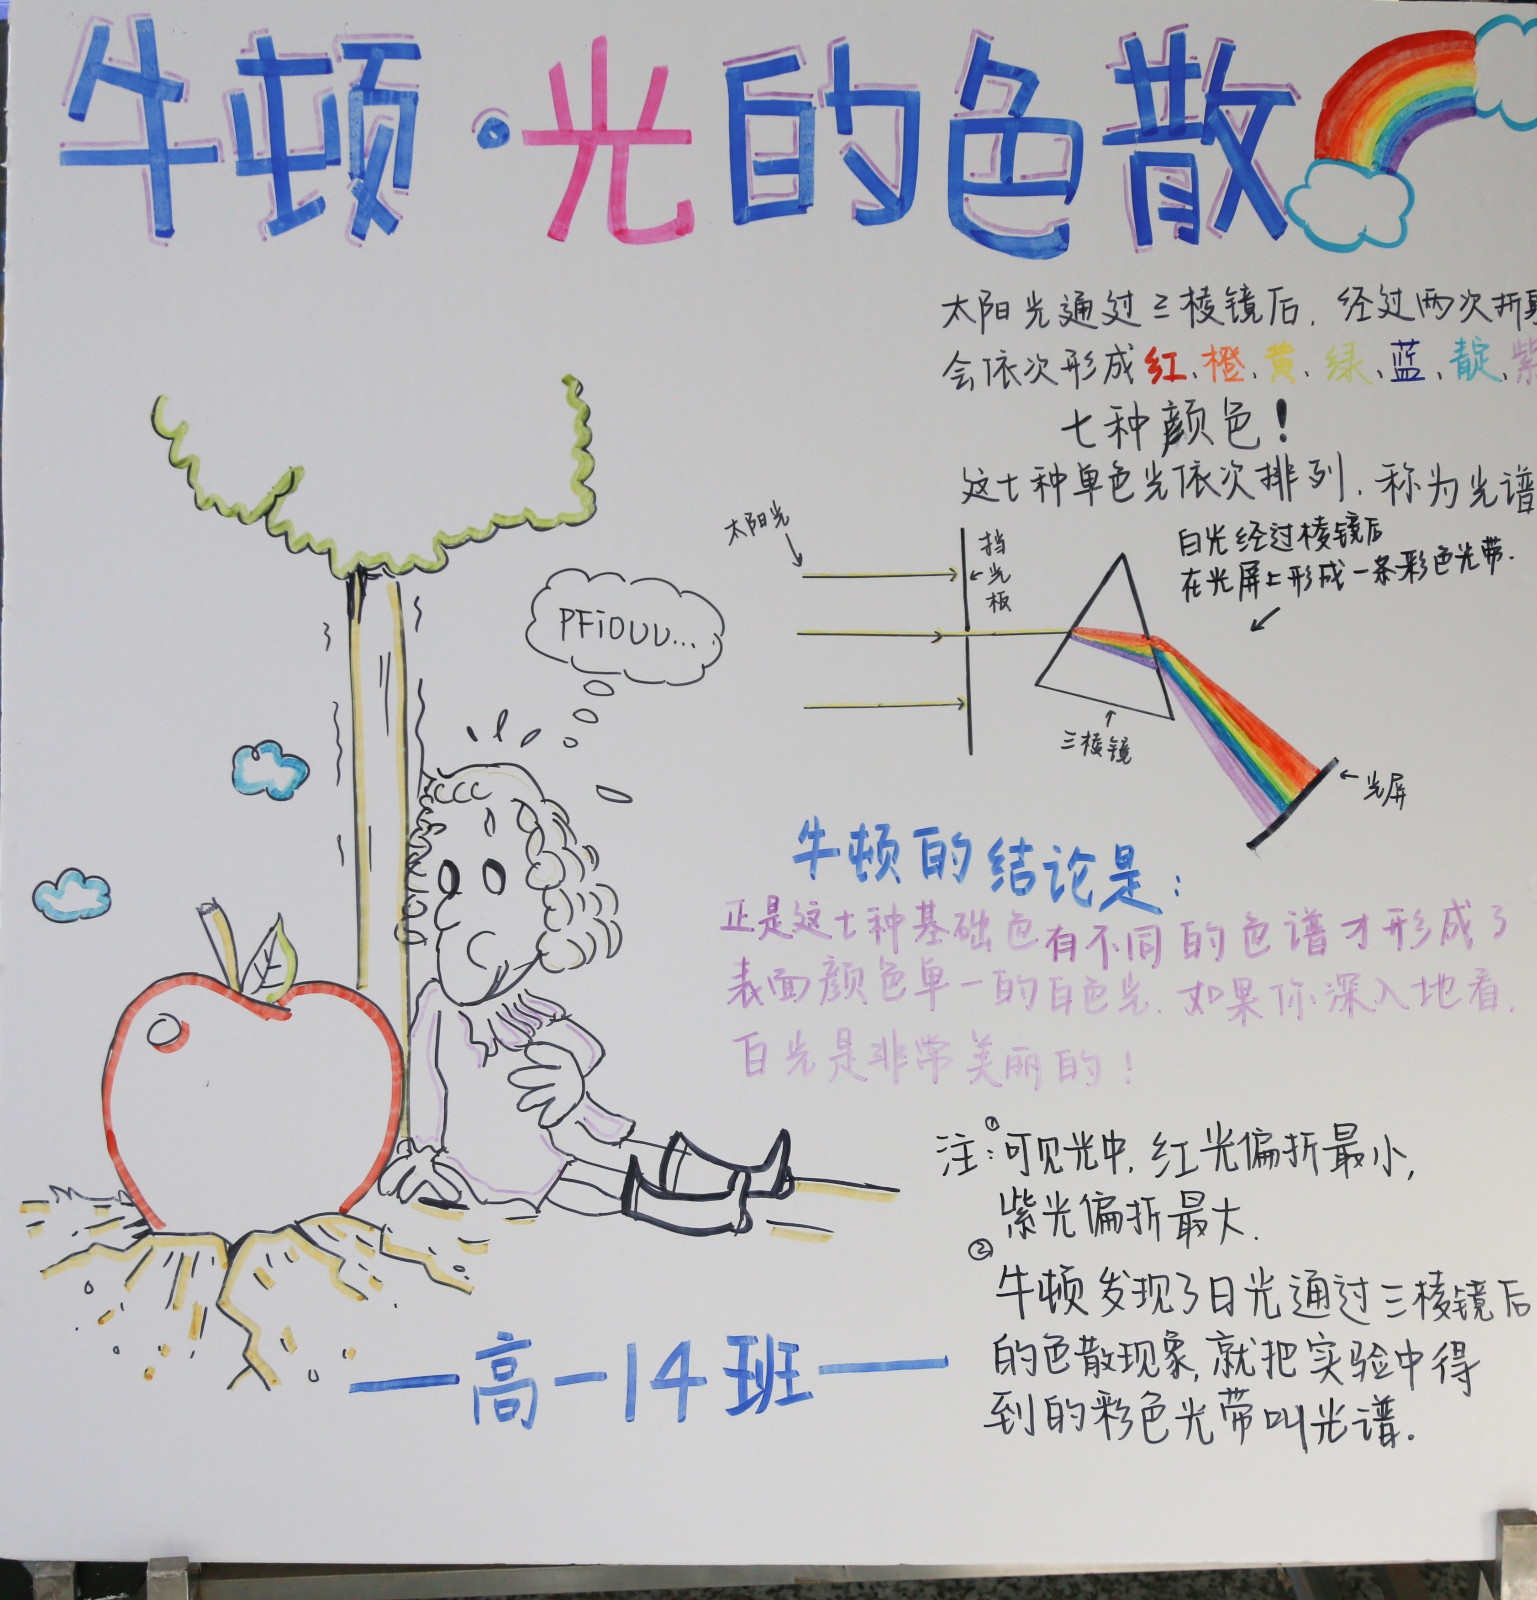 牛顿·光的色散
太阳光通过三棱镜后,经过两次折射
会依次形成红、橙、黄、绿、蓝、靛、紫
七种颜色!
这七种单色光依次排列,称为光谱
太阳光
挡光板
白光经过棱镜后
在光屏上形成一条彩色光带.
三棱镜
光屏
PFiOUU...
牛顿的结论是:
正是这七种基础色有不同的色谱才形成了
表面颜色单一的白色光.如果你深入地看,
白光是非常美丽的!
注:①可见光中,红光偏折最小,
紫光偏折最大.
②牛顿发现了日光通过三棱镜后
的色散现象,就把实验中得
到的彩色光带叫光谱.
—高一14班—